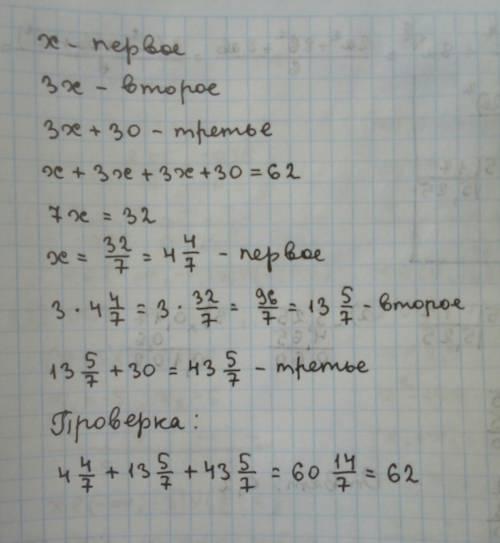 x - первое
3x - второе
3x + 30 - третье
x + 3x + 3x + 30 = 62
7x = 32
x = 32/7 = 4 4/7 - первое
3 · 4 4/7 = 3 · 32/7 = 96/7 = 13 5/7 - второе
13 5/7 + 30 = 43 5/7 - третье
Проверка:
4 4/7 + 13 5/7 + 43 5/7 = 60 14/7 = 62